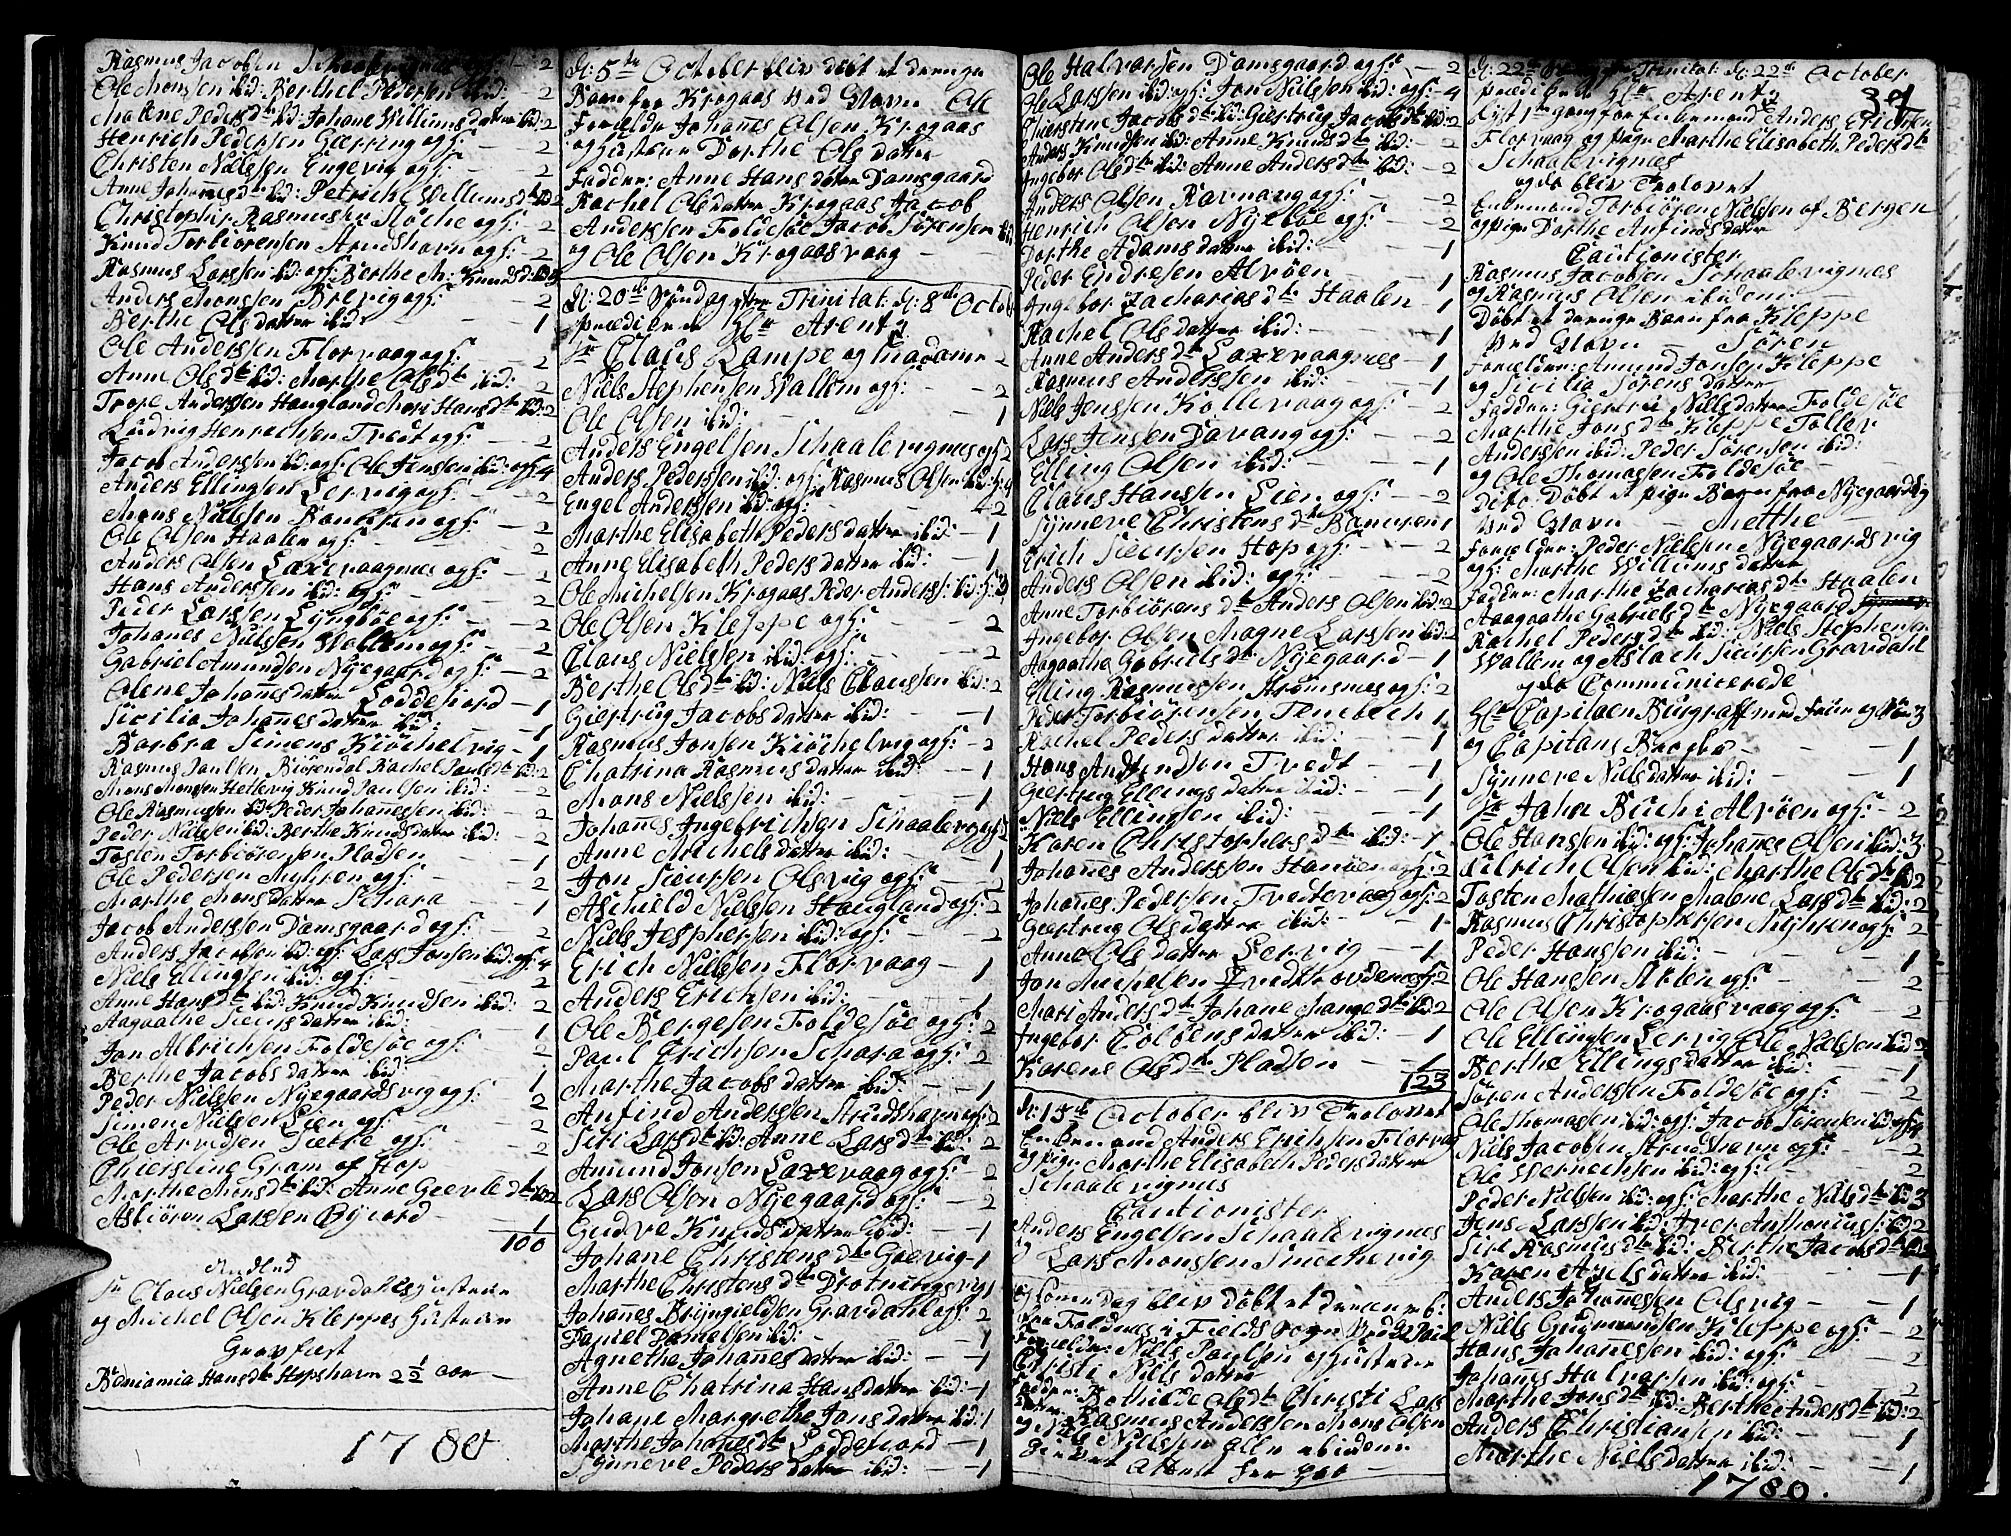 Rasmus Jacobsen - 2
Ole Monsen ibid: Berthel Pedersen ibid: - 2
Malene Peders dr ibid: Johane Willums datter ibid: 2
Henrich Pedersen Gierring og h: - 2
Christen Nielssen Engevig og h: - 2
Anne Johannes dr ibid: Petrich Willums dr ibid 2
Christopher Rasmussen Kloche og h: - 2
Knud Torbiörensen Strudshavn og h: - 2
Rasmus Larssen ibid: og h: Berthe M: Knuds d: ibid: 3
Anders Monssen Brevig og h: - 2
Berthe Ols datter ibid: - 1
Ole Anderssen Florvaag og h: - 2
Anne Ols dr ibid: Marthe Ols dr ibid: 2
Anderssen Haugland Mari Hans dr ibid: 2
Ludvig Henrichsen Tvedt og h: - 2
Jacob Anderssen ibid: og h: Ole Jenssen ibid: og h: 4
Anders Ellingsen Lervig og h: - 2
Mons Nielssen og h: - 2
Ole Olsen Haalen og h: - 2
Anders Olsen Laxevaagnæs og h: - 2
Hans Anderssen ibid: og h: - 2
Peder Larssen Lyngböe og h: - 2
Johanes Nielssen Wallem og h: - 2
Gabriel Amundsen Nyegaard og h: - 2
Olene Johanes datter Loddefiord - 1
Sicilia Johanes datter ibid: - 1
Barbra Simens Kiöchelvig - 1
Rasmus Paulsen Biörendal Rachel Pauls dr ibid: 2
Mons Monsen Hetlevig Knud Paulsen ibid: - 2
Ole Rasmussen ibid: Peder Johanessen ibid: - 2
Peder Nielssen ibid: Berthe Knuds datter ibid: - 2
Tosten Torbiörensen Pladsen - 1
Ole Pedersen Myhren og h: - 2
Marthe Mons datter Schara - 1
Jacob Anderssen Damsgaard og h: - 2
Anders Jacobsen ibid: og h: Lars Jonsen ibid: og h: 4
Niels Ellingsen ibid: og h: - 2
Anne Hans dr ibid: Knud Knudsen ibid: 2
Aagaathe Siurs datter ibid: - 1
Jan Albrichsen Foldesöe og h: - 2
Berthe Jacobs datter ibid: - 1
Peder Nielssen Nyegaardsvig og h: 2
Simen Nielsen Lien og h: - 2
Ole Arvedsen Sættre og h: - 2
Chierstine Gram af Hop - 1
Marthe Mons dr ibid: Anne dr ibid 2
Asbiören Larssen - 1
100
Indled
Sr Claus Nielsen Gravdahls hustrue
og Michel Olsen Kleppes hustrue
Gravfæst
Beniamia Hans dr Hopshavn 2 1/2 aar -
1780
D: 5te October blev döbt et drenge
Barn fra Krogaas ved Navn Ole
Forældre Johanes Olsen Krogaas
og hustrue Dorthe Ols datter
Faddere: Anne Hans datter Damsgaard
Rachel Ols datter Krogaas Jacob
Anderssen Foldesöe Jacob Sörensen ibid
og Ole Olsen Krogaasvaag -
D: 20de Söndag efter Trinitat: d: 8de Octob
prædiched Hr Arentz
Sr Claus Lampe og Madame - 2
Niels Stephensen Wallem og h: - 2
Ole Olsen ibid: - 1
Anders Engelsen Schaalevignæs og h 2
Anders Pederssen ibid: og h: Rasmus Olsen ibid: og h: 4
Engel Anderssen ibid: og h: - 2
Marthe Elisabeth Peders datter ibid: - 1
Anne Elisabeth Peders datter ibid: - 1
Ole Michelsen Krogaas Peder Anderss: ibid: og h: 3
Ole Olsen Kleppe og h: - 2
Claus Nielssen ibid: og h: - 2
Berthe Ols dr ibid: Niels Claussen ibid: 2
Giertrug Jacobs datter ibid: - 1
Rasmus Jonsen Kiöchelvig og h: - 2
Chatrina Rasmus datter ibid: - 1
Mons Nielssen ibid: - 1
Johanes Ingebrichsen Schaalevig og h 2
Anne Michels datter ibid: - 1
Jon Siurssen Olsvig og h: - 2
Aschield Nielssen Haugland og h: 2
Niels Jesphersen ibid: og h: - 2
Erich Nielssen Florvaag - 1
Anders Erichsen ibid: - 1
Ole Bergesen Foldesöe og h: 2
Paul Erichsen Schara og h: 2
Marthe Jacobs datter ibid: - 1
Anfind Anderssen Strudshavn og h: 2
Siri Lars dr ibid: Anne Lars dr ibid: 2
Amund Jonsen Laxevaag og h: - 2
Lars Olsen Nyegaard og h: - 2
Gudve Knuds datter ibid: - 1
Johane Christens dr Goevig - 1
Marthe Christens dr Drotningsvig 1
Johanes Brÿngieldsen Gravdahl og h: 2
Daniel Danielsen ibid: - 1
Agnethe Johanes datter ibid: - 1
Anne Chatrina Hans datter ibid: - 1
Johane Margrethe Jans datter ibid: 1
Marthe Johanes dr Loddefiord - 1
Synneve Peders datter ibid: - 1
Ole Halvorsen Damsgaard og h: - 2
Ole Larssen ibid: og h: Jon Nielssen ibid: og h: 4
Chierstine Jacobs dr ibid: Giertrug Jacobs dr ibid: 2
Anders Knudsen ibid: Anne Knuds dr ibid: - 2
Ingebor Ols dr ibid: Anne Anders dr ibid: - 2
Anders Olsen Ravnang og h: - 2
Henrich Olsen Nyeböe og h: - 2
Dorthe Adams datter ibid: - 1
Peder Endresen Alvöen - 1
Ingebor Zacharias dr Haalen - 1
Rachel Ols datter ibid: - 1
Anne Anders dr Laxevaagnæs - 1
Rasmus Anderssen ibid: - 1
Niels Jenssen Kollevaag og h: - 2
Lars Jensen Davang og h: - 2
Elling Olsen ibid: - 1
Claus Hanssen Lien og h: - 2
Synneve Christens dr 1
Erich Siurssen Hop og h: - 2
Anders Olsen ibid: og h: - 2
Anne Torbiörens dr Anders Olsen ibid: 2
Ingebor Olsen Magne Larssen ibid: 2
Aagaathe Gabriels dr Nyegaard - 1
Elling Rasmussen Strömsnæs og h: 2
Peder Torbiörensen Tenebech 1
Rachel Peders datter ibid: - 1
Hans Tvedt - 1
Giertrug Ellings datter ibid: - 1
Niels Ellingsen ibid: - 1
Karen Christophers dr ibid: - 1
Johanes Anderssen og h: 2
Johanes Pedersen Tveitevaag og h: 2
Giertrug Ols datter ibid: - 1
Anne Ols datter Lervig - 1
Jon Michelsen og h 2
Mari Anders dr Johane Mange dr ibid 2
Ingebor datter ibid: - 1
Karens Ols dr Pladsen - 1
123
D: 15de October blev Trolovet
Enkemand Anders Erichsen Florvaag
og pige Marthe Elisabeth Peders datter
Schaalevignæs
Cautionister
Anders Engelsen Schaalevignæs
og Lars Monssen Smedhevig
og samme Dag blev döbt et drenge b:
fra Foldnæs i Fields Sogn ved N: Paul
Forældre: Niels Paulsen og hustrue
Christi Niels datter
Faddere: Bothilde Ols dr Christi Lars
datter Rasmus Anderssen Mons Olsen
og Ole Nielssen alle ibidem
D: 22de Trinitat: d: 22de October
prædiched Hr Arentz 34
Lyst 1te gang for Enkemand Anders Erichsen
Florvaag og Pigen Marthe Elisabeth Peders dr
Schaalevignæs
og da blev Trolovet
Enkemand Torbiören Nielssen af Bergen
og pige Dorthe Anfinds datter
Cautionister
Rasmus Jacobsen Schaalevignæs
og Rasmus Olsen ibidem -
Döbt et drenge Barn fra Kleppe
Ved Navn - Sören
Forældre: Amund Jonsen Kleppe
og Sicilia Sörens datter
Faddere: Giertru Niels datter Foldesöe
Marthe Jons dr Kleppe Toller
Anderssen ibid: Peder Sörensen ibid:
og Ole Thomassen Foldesöe -
dito Döbt et pige Barn fra Nyegaardsvig
Ved Navn - Metthe -
Forældre: Peder Nielssen Nyegaardsvig
og h: Marthe Willums datter
Faddere: Marthe Zacharias dr Haalen
Aagaathe Gabriels dr Nyegaard
Rachel Peders dr ibid: Niels Stephensen
Wallem og Aslach Siurssen Gravdahl
og da Communicerede
Hr Capitaen Burgraff med Frue og 3
og Capitans - 1
Synneve Niels datter ibid: - 1
Sr John Buch i Alvöen og h: - 2
Ole Hanssen ibid: og h: Johanes Olsen ibid: 3
Ulrich Olsen ibid: Marthe Ols dr ibid 2
Tosten Mathiesen Malene Lars dr ibid: 2
Rasmus Christophersen Myhren og h: 2
Peder Hanssen ibid: - 1
Ole Hanssen og h: - 2
Ole Olsen Krogaasvaag og h: - 2
Ole Ellingsen Lervig Ole Nielssen ibid 2
Berthe Ellings datter ibid: - 1
Sören Anderssen Foldesöe og h: - 2
Ole Thomassen ibid: og h: Jacob Sörensen ibid: og h 4
Niels Jacobsen Strudshavn og h: - 2
Ole Wernechsen ibid: og h: - 2
Peder Nielssen ibid: og h: Marthe Niels dr ibid 3
Jens Larssen ibid: Iver Anthonius: ibid 2
Siri Rasmus dr ibid: Berthe Jacobs dr ibid 2
Karen Axels datter ibid: - 1
Anders Johanessen Olsvig - 1
Niels Gudmundsen Kleppe og h: - 2
Hans Johanessen ibid: og h: - 2
Johanes Halvorsen ibid: og h: - 2
Marthe Jons dr ibid: Berthe Anders dr ibid: 2
Anders Christiansen ibid: - 1
Marthe Niels datter ibid: - 1
1780.